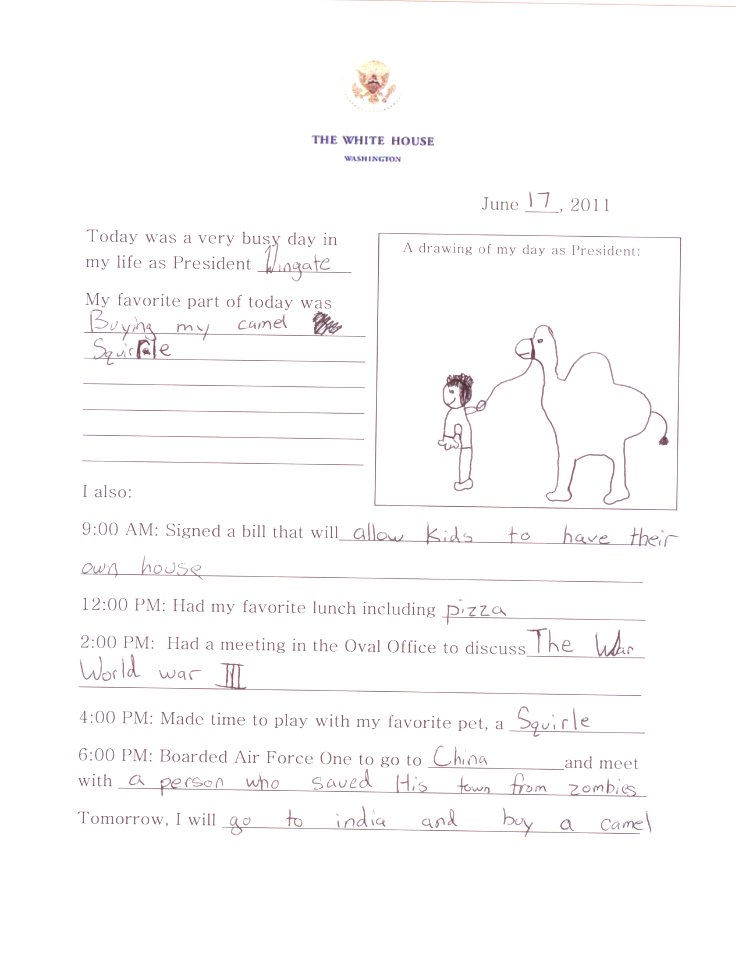 THE WHITE HOUSE
WASHINGTON
June 17, 2011
Today was a very busy day in
my life as President Wingate
My favorite part of today was
Buying my camel
Squirle
A drawing of my day as President:
I also:
9:00 AM: Signed a bill that will allow kids to have their
own house
12:00 PM: Had my favorite lunch including pizza
2:00 PM: Had a meeting in the Oval Office to discuss The War
World war III
4:00 PM: Made time to play with my favorite pet, a Squirle
6:00 PM: Boarded Air Force One to go to China and meet
with a person who saved His town from zombies
Tomorrow, I will go to india and buy a camel